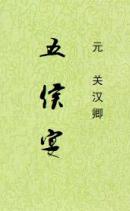 元 关汉卿
五侯宴